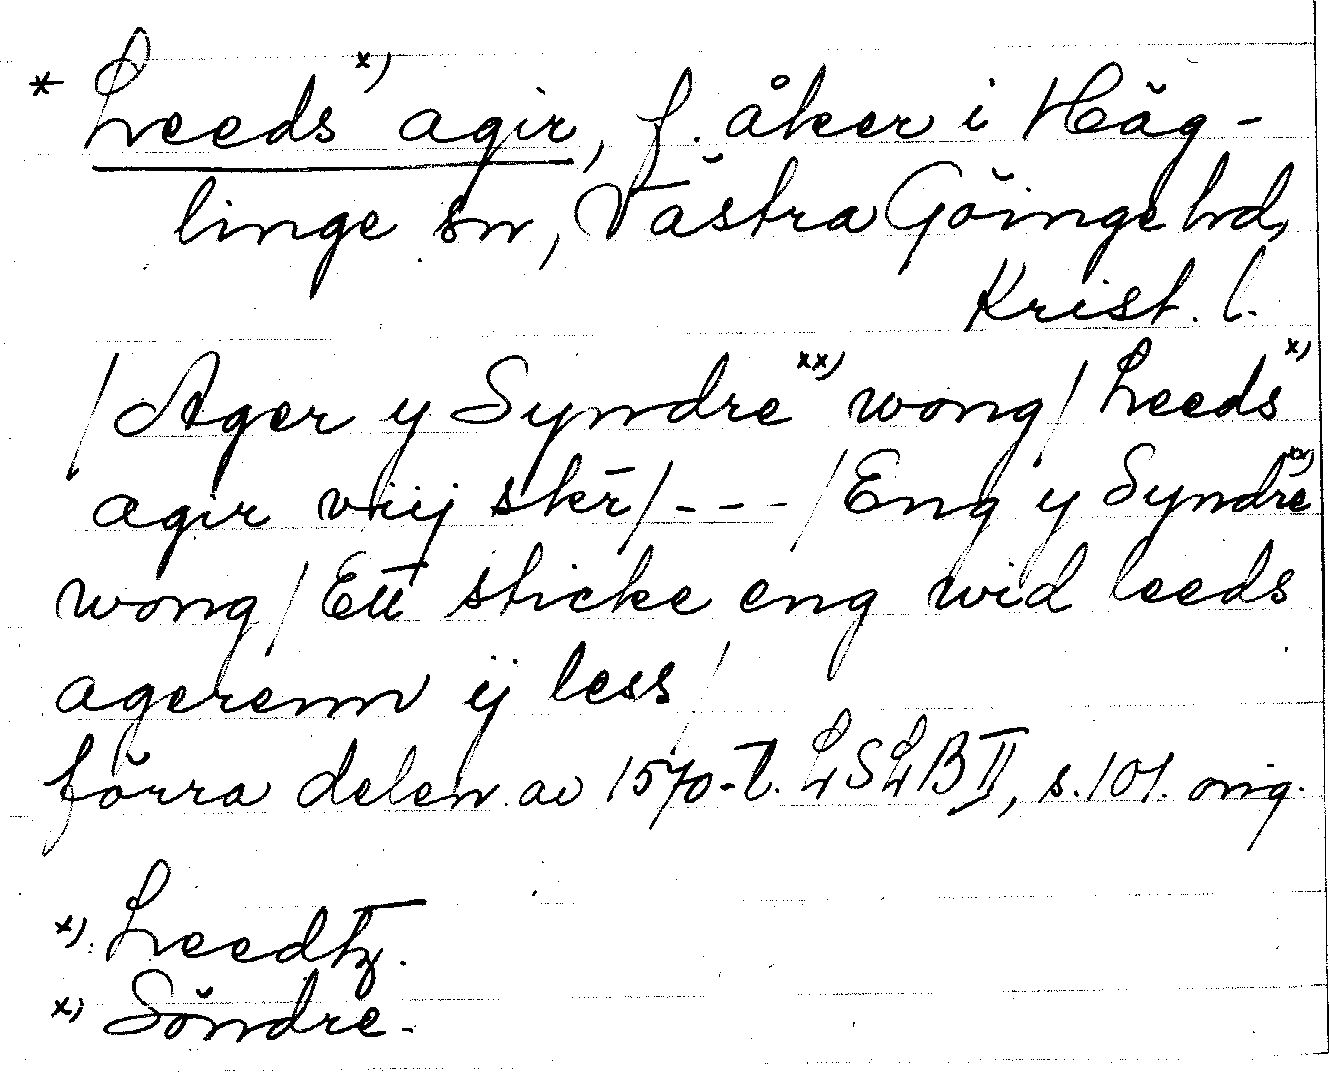 * Leeds x) agir, f. åker i Häg-
linge sn, Västra Göinge hd,
Krist. l.
/Ager y Syndre xx) wong/ Leeds x)
agir viij skr̄/ - - - /Eng y Syndre xx)
wong/ Ett sticke eng wid leeds
agerenn ij less/
förra delen av 1570-t. LSLB II, s. 101. orig.
x) Leedtz.
x) Söndre.